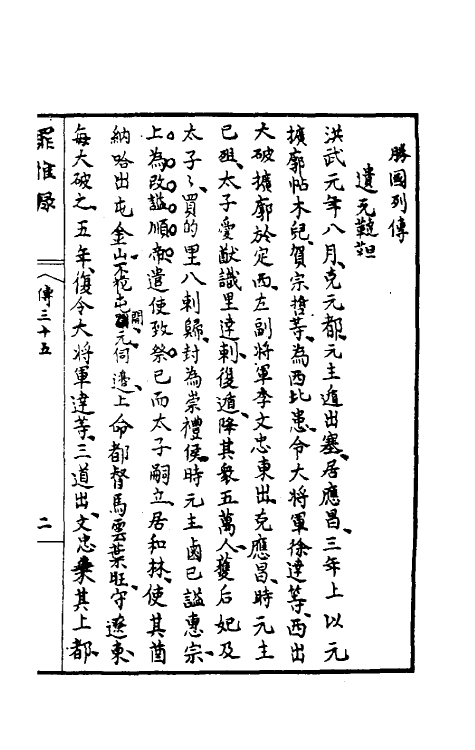 勝國列傳
遺元韃靼
洪武元年八月、克元都、元主遁出塞、居應昌、三年上以元
擴廓帖木兒、賀宗哲等、為西北患、令大將軍徐達等、西出
大破擴廓於定西、左副將軍李文忠東出、克應昌、時元主
已殂、太子愛猷識里達剌、復遁、降其衆五萬人、獲后妃及
太子〻買的里八剌歸、封為崇禮侯、時元主鹵已謚惠宗、
上為改謚順帝、遣使致祭、已而太子嗣立、居和林、使其酋
納哈出屯金山、不花屯開元伺邊、上命都督馬雲葉旺、守遼東、
每大破之、五年、復令大將軍達等、三道出、文忠其上都、
罪惟錄
傳三十五
二